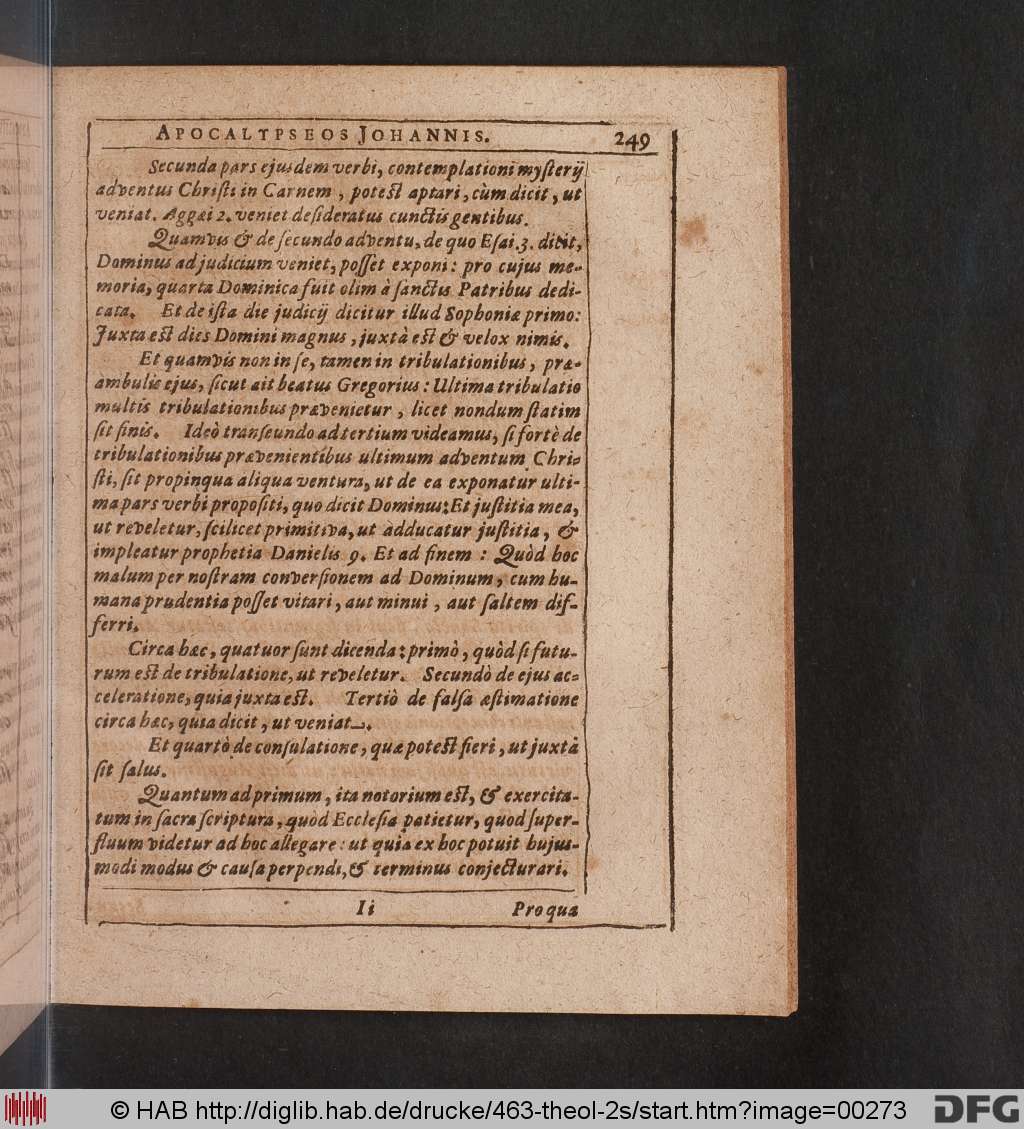 APOCALYPSEOS JOHANNIS. 249
Secunda pars ejusdem verbi, contemplationi mysterij
adventus Christi in Carnem, potest aptari, cùm dicit, ut
veniat. Aggæi 2. veniet desideratus cunctis gentibus.
Quamvis & de secundo adventu, de quo Esai. 3. dicit,
Dominus ad judicium veniet, posset exponi: pro cujus me-
moria, quarta Dominica fuit olim à sanctis Patribus dedi-
cata. Et de ista die judicij dicitur illud Sophoniæ primo:
Juxta est dies Domini magnus, juxtà est & velox nimis.
Et quamvis non in se, tamen in tribulationibus, præ-
ambulis ejus, sicut ait beatus Gregorius: Ultima tribulatio
multis tribulationibus prævenietur, licet nondum statim
sit finis. Ideò transeundo ad tertium videamus, si fortè de
tribulationibus prævenientibus ultimum adventum Chri-
sti, sit propinqua aliqua ventura, ut de ea exponatur ulti-
ma pars verbi propositi, quo dicit Dominus: Et justitia mea,
ut reveletur, scilicet primitiva, ut adducatur justitia, &
impleatur prophetia Danielis 9. Et ad finem: Quòd hoc
malum per nostram conversionem ad Dominum, cum hu-
mana prudentia posset vitari, aut minui, aut saltem dif-
ferri.
Circa hæc, quatuor sunt dicenda: primò, quòd si futu-
rum est de tribulatione, ut reveletur. Secundò de ejus ac-
celeratione, quia juxta est. Tertiò de falsa æstimatione
circa hæc, quia dicit, ut veniat.
Et quartò de consulatione, quæ potest fieri, ut juxtà
sit salus.
Quantum ad primum, ita notorium est, & exercita-
tum in sacra scriptura, quòd Ecclesia patietur, quod super-
fluum videtur ad hoc allegare: ut quia ex hoc potuit hujus-
modi modus & causa perpendi, & terminus conjecturari.
Ii Pro qua
© HAB http://diglib.hab.de/drucke/463-theol-2s/start.htm?image=00273 DFG